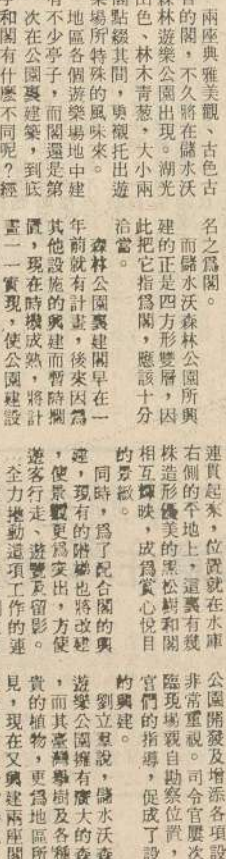 兩座典雅美觀、古色古
的閣，不久將在儲水沃
森林遊樂公園出現。湖光
色、林木青葱，大小兩
閣點綴其間，更襯托出遊
樂場所特殊的風味來。
地區各個遊樂場地中建
有不少亭子，而閣還是第
次在公園裏建築，到底
和閣有什麼不同呢？經
名之爲閣。
而儲水沃森林公園所興
建的正是四方形雙層，因
此把它指爲閣，應該十分
洽當。
森林公園裏建閣早在一
年前就有計畫，後來因爲
其他設施的興建而暫時擱
置，現在時機成熟，將計
畫一一實現，使公園建設
連貫起來，位置就在水庫
右側的平地上，這裏有幾
株造形優美的黑松樹和閣
相互輝映，成爲賞心悅目
的景緻。
同時，爲了配合閣的興
建，現有的階梯也將改建
，使景觀更爲突出，方便
遊客行走、遊覽及留影。
全力推動這項工作的連
公園開發及增添各項設
非常重視。司令官屢次
臨現場親自勘察位置，
官們的指導，促成了設
的興建。
劉立羣說，儲水沃森
遊樂公園擁有廣大的森
，而其臺灣欅樹及各種
貴的植物，更爲地區所
見，現在又興建兩座閣